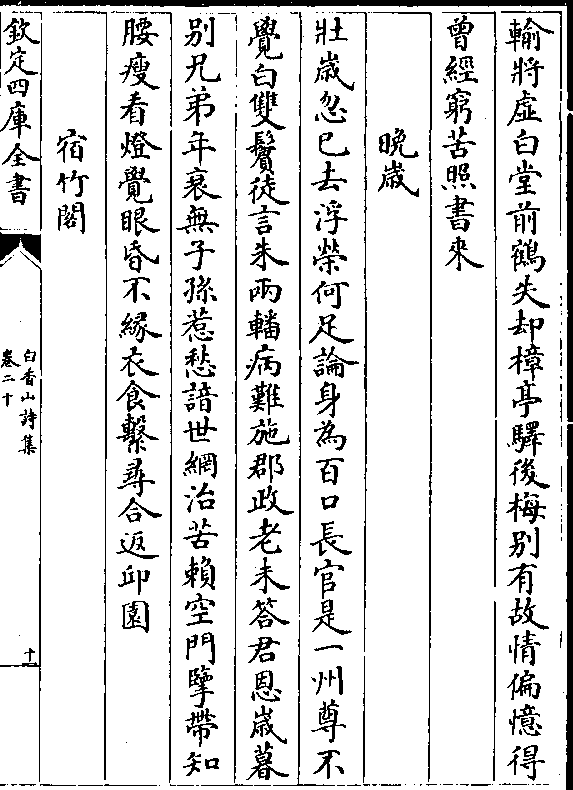 輸將虛白堂前鶴失却樟亭驛後梅别有故情偏憶得
曾經窮苦照書來
晚歲
壯歲忽已去浮榮何足論身為百口長官是一州尊不
覺白雙鬢徒言朱兩轓病難施郡政老未答君恩歲暮
别兄弟年衰無子孫惹愁諳世網治苦賴空門擥帶知
腰瘦看燈覺眼昏不緣衣食繫尋合返邱園
宿竹閣
欽定四庫全書
白香山詩集
卷二十
十一